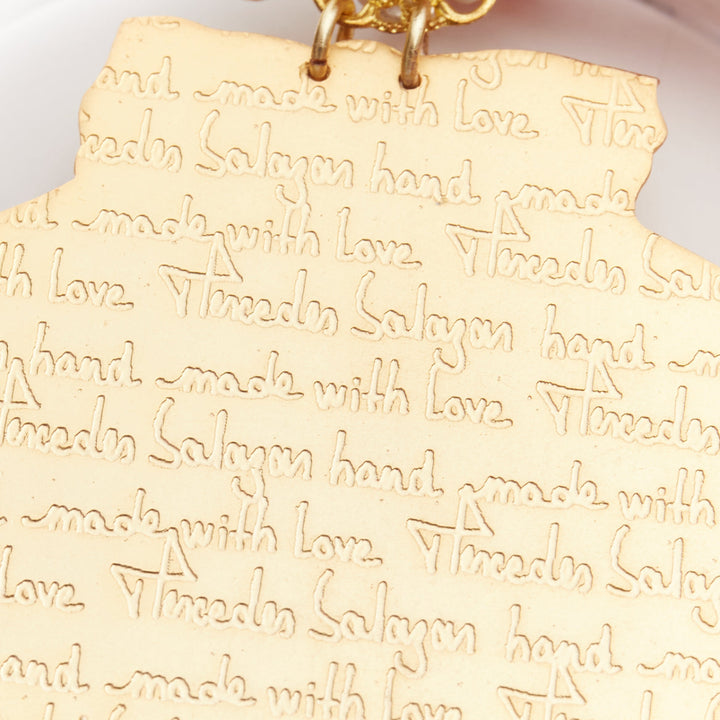 hand made with Love Merc
rcedes Salazar hand made
made with Love Mercedes Sala
th Love Mercedes Salazar hand m
hand made with Love Mercedes
Mercedes Salazar hand made with
made with Love Mercedes Salaz
Love Mercedes Salazar hand ma
hand made with Love